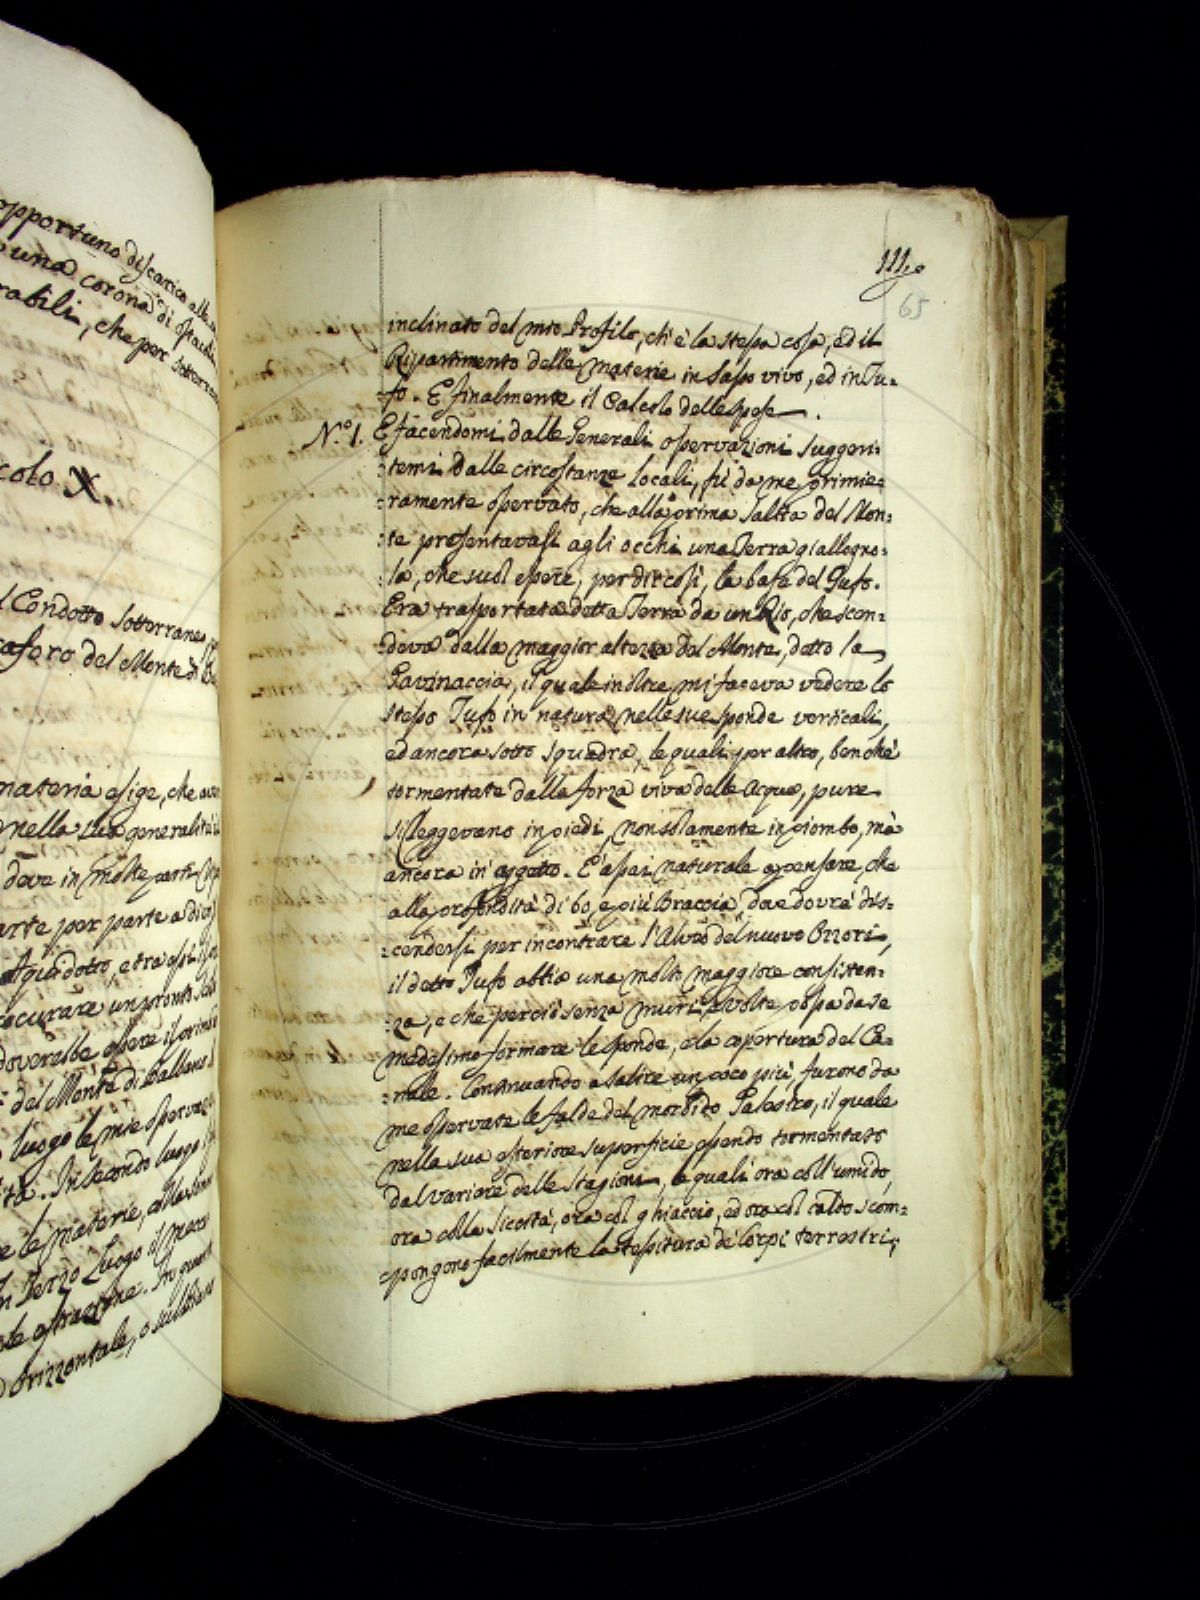 opportuno discarico alle
una corona di ostacoli
rabili, che per sotterra
colo X.
l Condotto Sotterraneo
raforo del Monte di
materia esige, che
nella sua generalità
dove in molte parti
arte per parte a dio
Aquidotto, e tra essi
rocurare un pronto
doverebbe essere il prim
del Monte di Balbano
luogo le mie osservaz
ità. In secondo luogo
e le materie, colla
In Terzo Luogo il
le estrazione. In quart
Orizzontale, o sul
111.
65
inclinato del mio Profilo, ch'è la stessa cosa, ed il
Ripartimento delle materie in Sasso vivo, ed in Tu=
=fo. E finalmente il Calcolo delle spese.
N.º 1. E facendomi dalle Generali osservazioni suggeri=
=temi dalle circostanze locali, fù da me primie=
=ramente osservato, che alla prima Salita del Mon=
=te presentavasi agli occhi una Terra giallegno=
=la, che suol essere, per dir così, la base del Tufo.
Era trasportata detta Terra da un Rio, che scen=
deva dalla maggior altezza del Monte, detto la
Gavinaccia, il quale inoltre mi faceva vedere lo
stesso Tufo in natura nelle sue sponde verticali,
ed ancora sotto squadra, le quali per altro, benchè
tormentate dalla forza viva delle Acque, pure
si leggevano in piedi, non solamente in piombo, mà
ancora in aggetto. E' assai naturale a pensare, che
alla profondità di 60, e più Braccia, da e dovrà dis=
=cendersi per incontrare l'Alveo del nuovo Ozzori,
il detto Tufo abbia una molto maggiore consisten=
=za, e che perciò senza muri, e volte possa da se
medesimo formare le sponde, e la copertura del Ca=
=nale. Continuando a salire un poco più, furono da
me osservate le falde del morbido Galestro, il quale
nella sua esteriore superficie essendo tormentato
dal variare delle Stagioni, le quali ora coll'umido,
ora colla siccità, ora col ghiaccio, ed ora col caldo scom=
=pongono facilmente la tessitura de' Corpi terrestri,